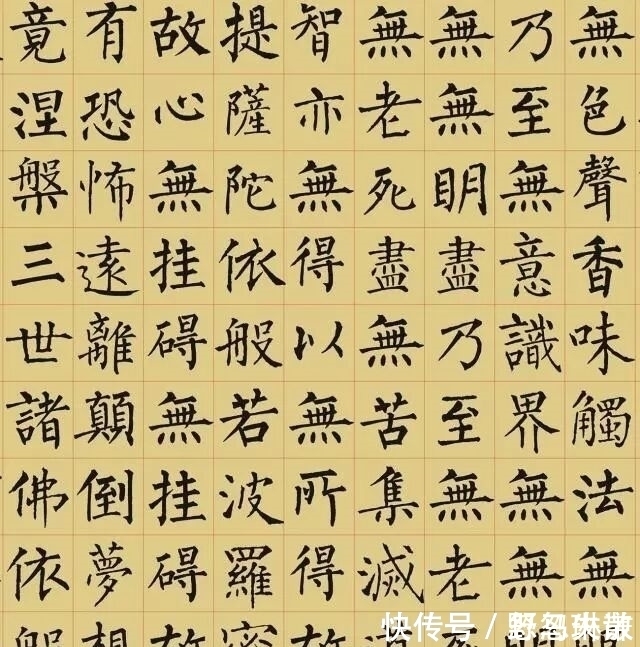 無色聲香味觸法無
乃至無意識界無無
無眀盡乃至無老
無老死盡無苦集滅
智亦無得以無所得故
提薩陀依般若波羅密
故心無挂碍無挂碍故
有恐怖遠離顛倒夢想
竟涅槃三世諸佛依般
快传号 /